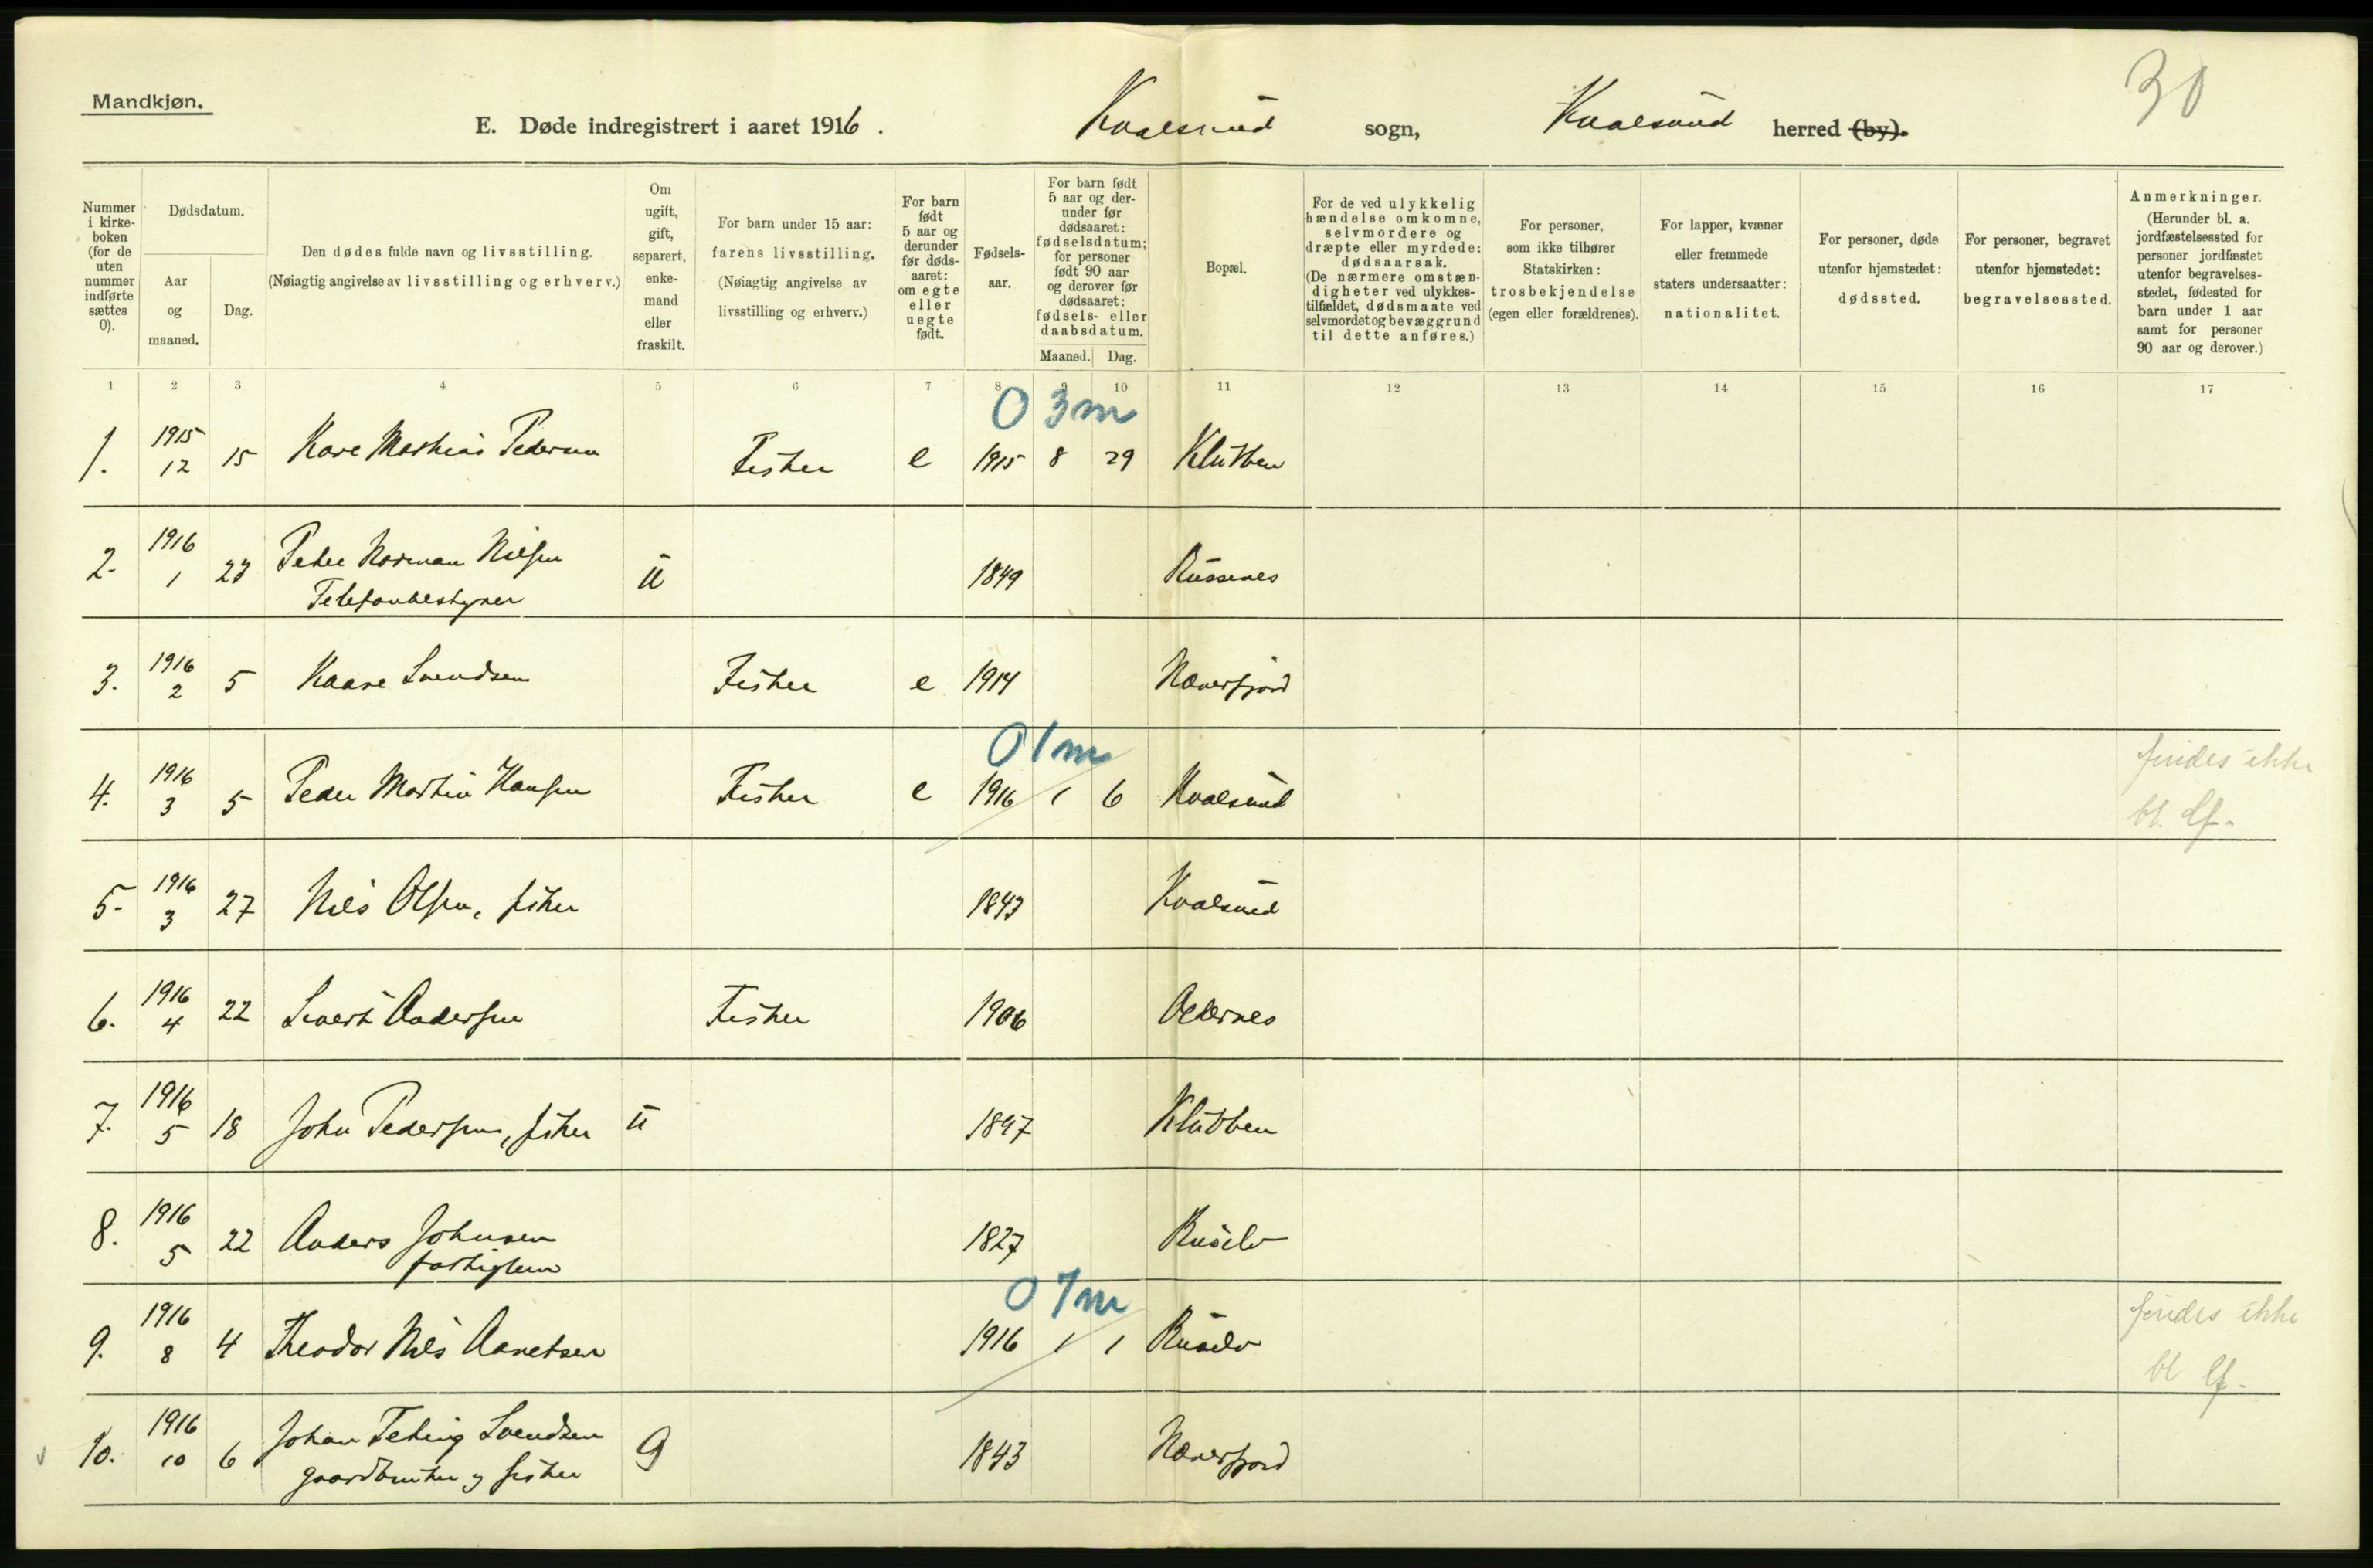 30
Mandkjøn.
E. Døde indregistrert i aaret 1916. Kvalsund sogn, Kvalsund herred (by).
Nummer i kirke-boken (for de uten nummer indførte sættes 0).
Dødsdatum.
Aar og maaned.
Dag.
Den dødes fulde navn og livsstilling.
(Nøiagtig angivelse av livsstilling og erhverv.)
Om ugift, gift, separert, enke-mand eller fraskilt.
For barn under 15 aar: farens livsstilling.
(Nøiagtig angivelse av livsstilling og erhverv.)
For barn født 5 aar og derunder før døds-aaret: om egte eller uegte født.
Fødsels-aar.
For barn født 5 aar og der-under før dødsaaret: fødselsdatum; for personer født 90 aar og derover før dødsaaret: fødsels- eller daabsdatum.
Maaned. Dag.
Bopæl.
For de ved ulykkelig hændelse omkomne, selvmordere og dræpte eller myrdede: dødsaarsak.
(De nærmere omstæn-digheter ved ulykkes-tilfældet, dødsmaate ved selvmordet og bevæggrund til dette anføres.)
For personer, som ikke tilhører Statskirken: trosbekjendelse (egen eller forældrenes).
For lapper, kvæner eller fremmede staters undersaatter: nationalitet.
For personer, døde utenfor hjemstedet: dødssted.
For personer, begravet utenfor hjemstedet: begravelsessted.
Anmerkninger.
(Herunder bl. a. jordfæstelsessted for personer jordfæstet utenfor begravelses-stedet, fødested for barn under 1 aar samt for personer 90 aar og derover.)
1 2 3 4 5 6 7 8 9 10 11 12 13 14 15 16 17
0 3m
1. 1915 12 15 Kare Mathias Pedersen Fisker e 1915 8 29 Klubben
2. 1916 1 23 Peder Norman Nilsen u 1849 Russenes
Telefonbestyrer
3. 1916 2 5 Kaare Svendsen Fisker e 1914 Næverfjord
0 1m
4. 1916 3 5 Peder Martin Hansen Fisker e 1916 1 6 Kvalsund findes ikke
bl. lf.
5. 1916 3 27 Nils Olsen, fisker 1843 Kvalsund
6. 1916 4 22 Sivert Andersen Fisker 1906
7. 1916 5 18 John Pedersen, fisker u 1897 Klubben
8. 1916 5 22 Anders Johnsen 1827 Ruselv
fattiglem
0 7m
9. 1916 8 4 Theodor Nils 1916 1 1 Ruselv findes ikke
bl lf.
10. 1916 10 6 Johan Svendsen g 1843 Næverfjord
gaardbruker og fisker